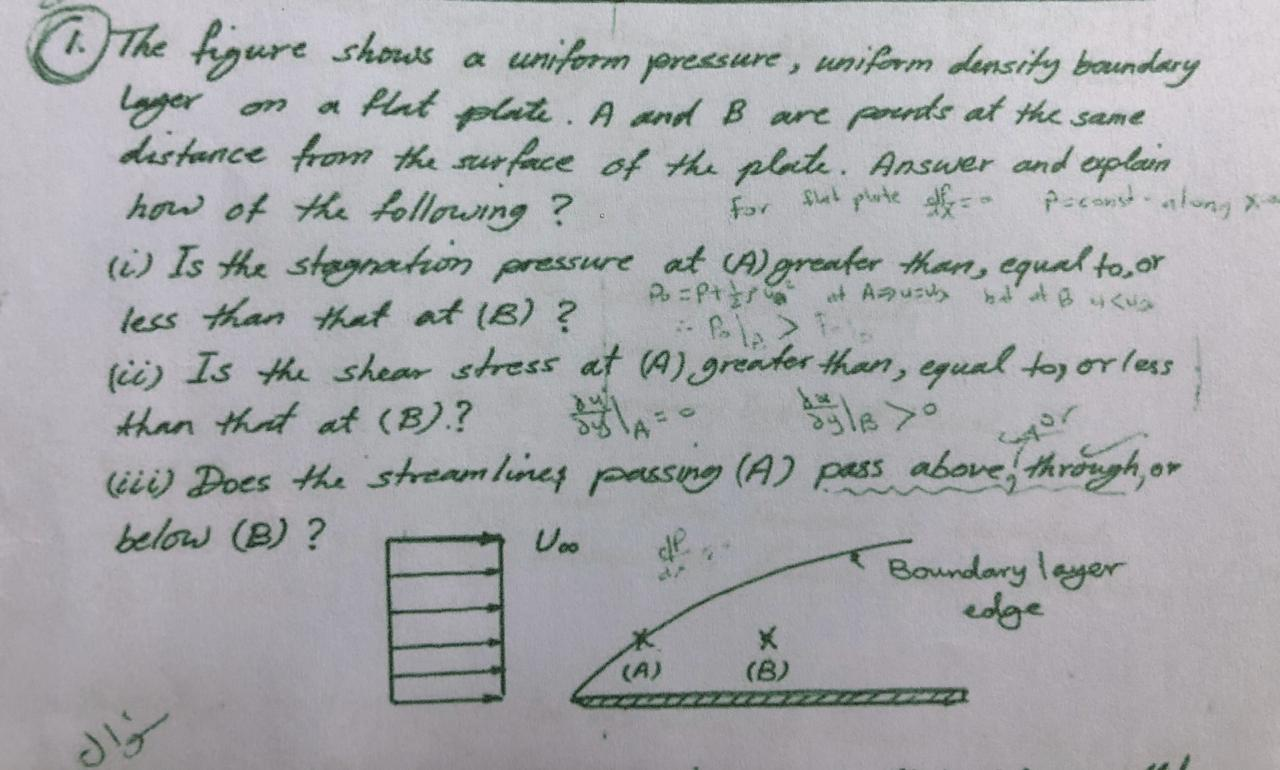 1. The figure shows a uniform pressure, uniform density boundary
layer on a flat plate. A and B are points at the same
distance from the surface of the plate. Answer and explain
how of the following?
For flat plate dP/dx = 0 P = const. along x
(i) Is the stagnation pressure at (A) greater than, equal to, or
P₀ = P + ½ρu² at A ⇒ u = U∞ but at B u < U∞
less than that at (B)?
∴ P₀|A >
(ii) Is the shear stress at (A) greater than, equal to, or less
than that at (B).? ∂u/∂y|A = 0 ∂u/∂y|B > 0
or
(iii) Does the streamlines passing (A) pass above, through, or
below (B)?
U∞
dP/dx = 0
Boundary layer
edge
(A) (B)
سؤال